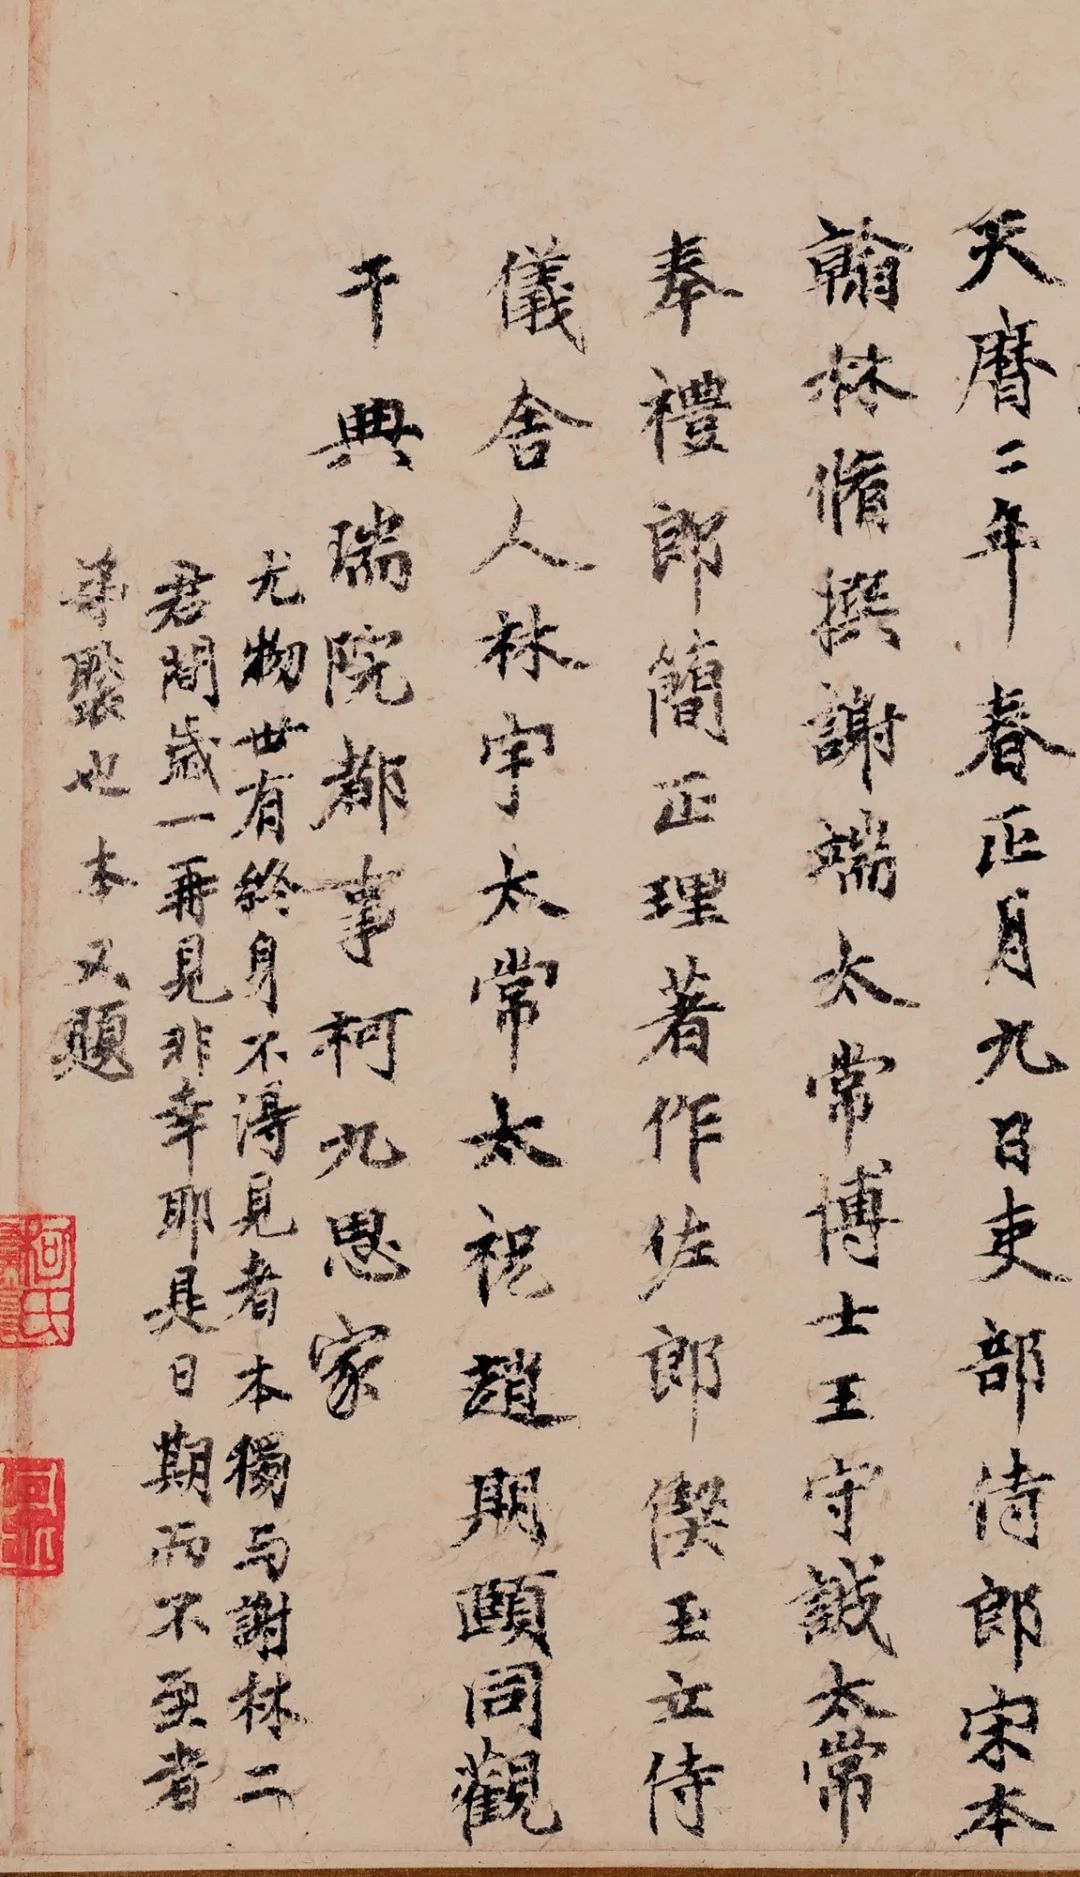 天曆二年春正月九日吏部侍郎宋本
翰林脩撰謝端太常博士王守誠太常
奉禮郎簡正理著作佐郎偰玉立侍
儀舍人林宇太常太祝趙期頤同觀
于典瑞院都事柯九思家
尤物世有終身不得見者本獨與謝林二
君間歲一再見非幸耶是日期而不至者
弟褧也本又題
柯氏